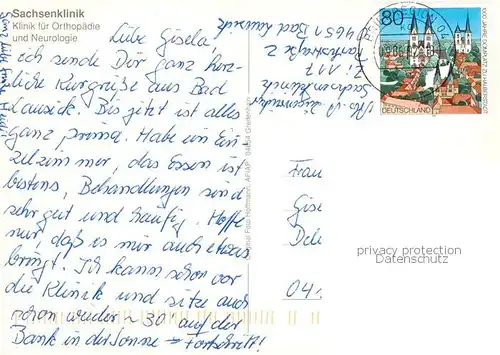 Sachsenklinik
Klinik für Orthopädie
und Neurologie
Liebe Gisela,
ich sende Dir ganz herz-
liche Kurgrüße aus Bad
Lausick. Bis jetzt ist alles
ganz prima. Habe ein Ein-
zelzimmer, das Essen ist
bestens, Behandlungen sind
sehr gut und häufig. Hoffe
nur, daß es mir auch etwas
bringt. Ich kann schon vor
die Klinik und sitze auch
schon wieder ~ 30 auf der
Bank in der Sonne → Fortschritt!
Sachsenklinik
Zi. 117
Parkstraße 2
04651 Bad Lausick
80
DEUTSCHLAND
1000 JAHRE DOMPLATZ ZU HALBERSTADT
Frau
Gise
Deli
04
privacy protection
Datenschutz